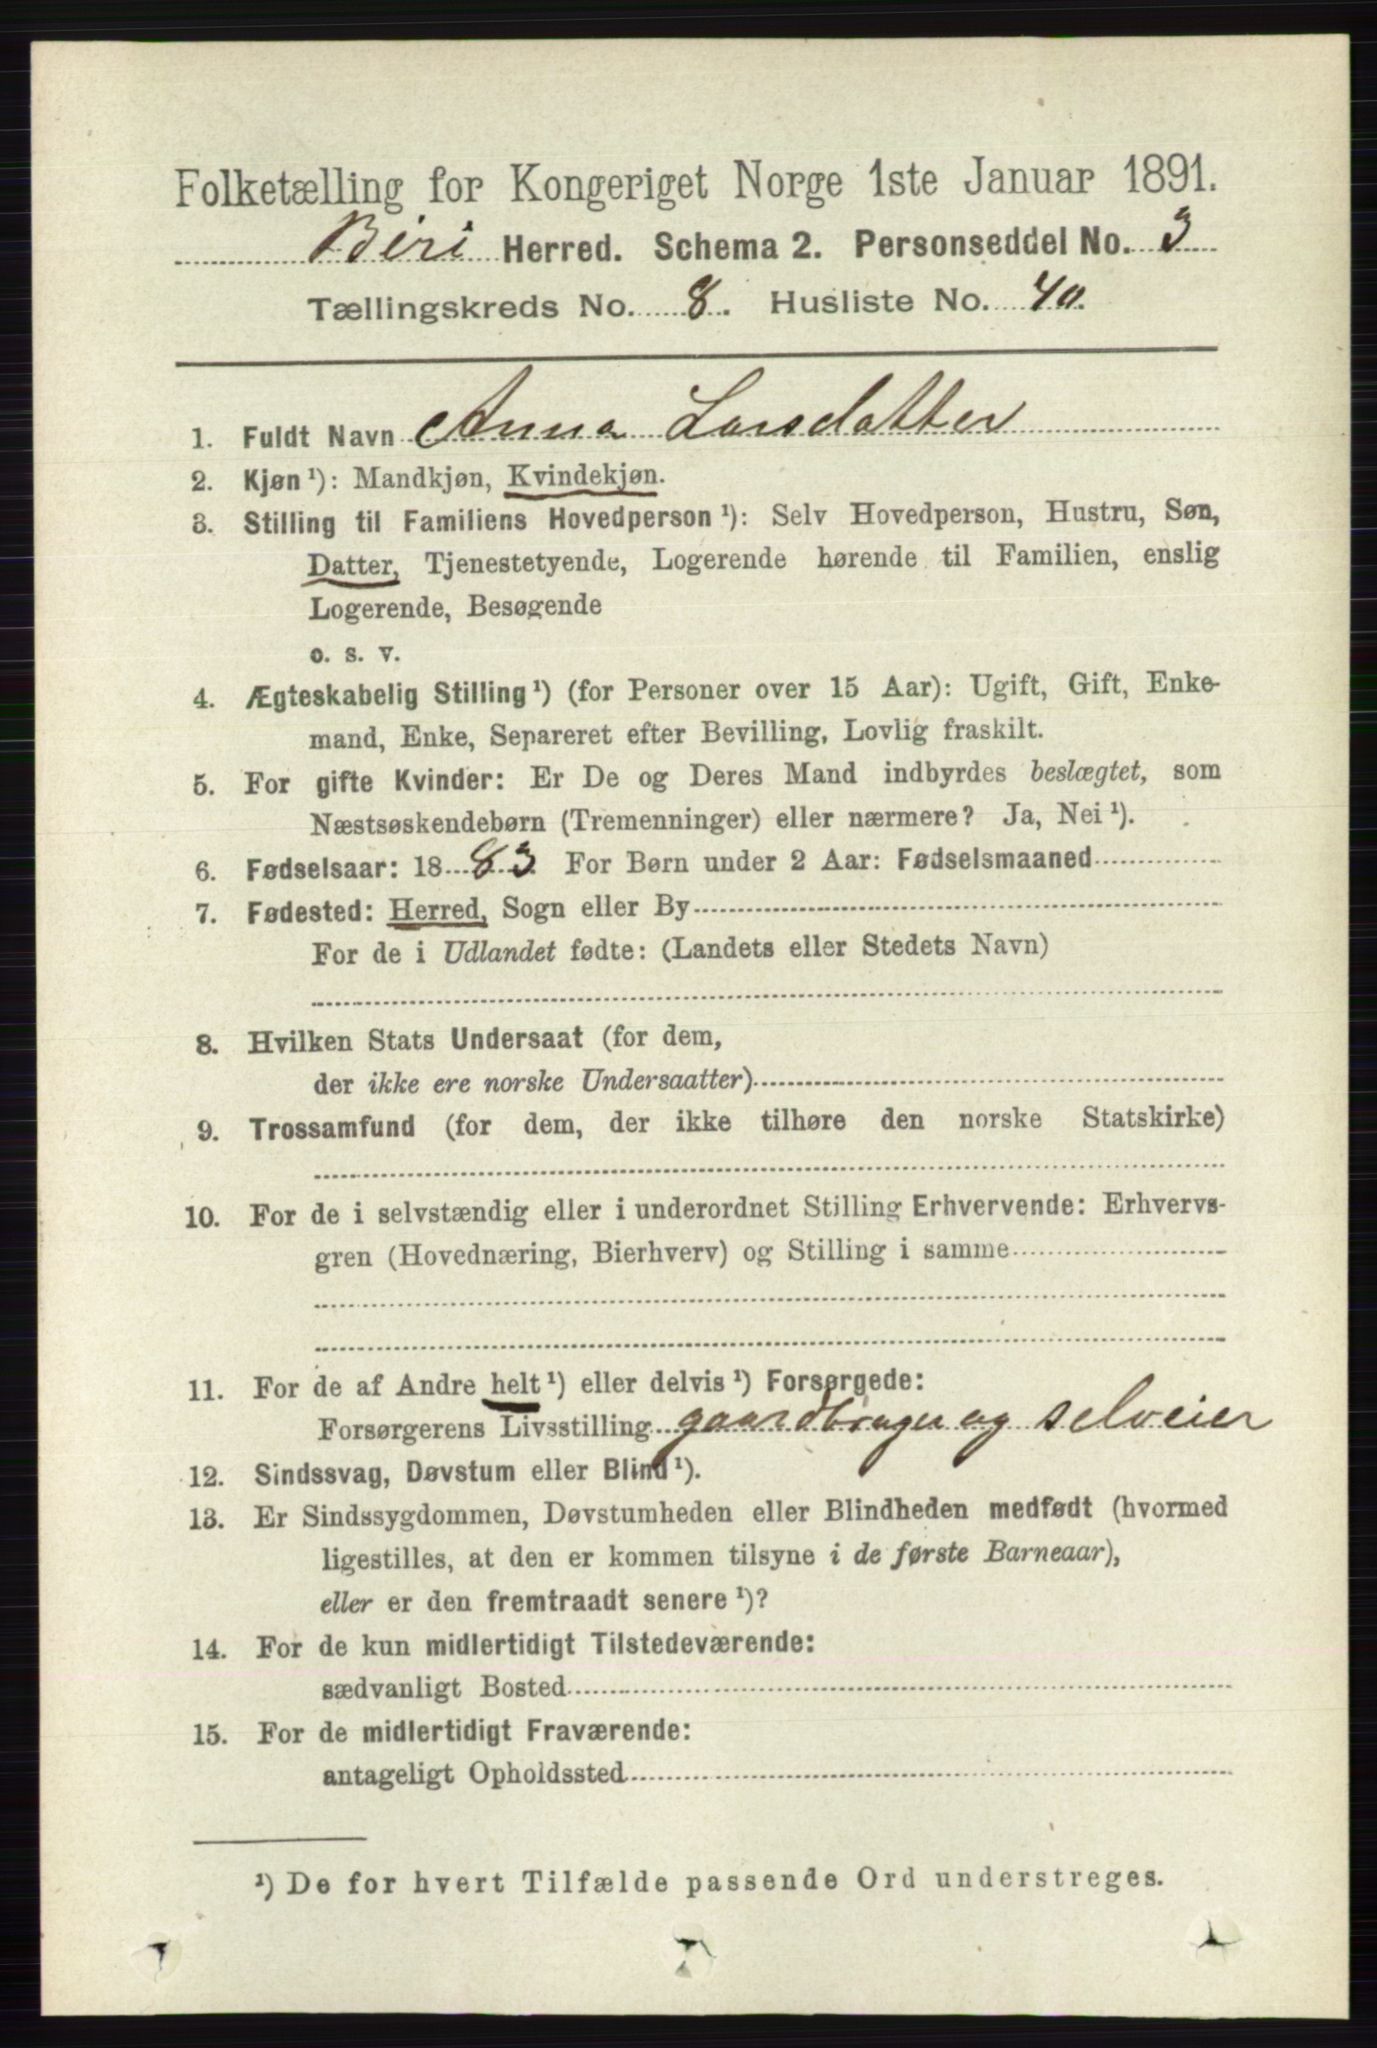 Folketælling for Kongeriget Norge 1ste Januar 1891.
Biri Herred. Schema 2. Personseddel No. 3
Tællingskreds No. 8. Husliste No. 40.
1. Fuldt Navn Anna Larsdatter
2. Kjøn¹): Mandkjøn, Kvindekjøn.
3. Stilling til Familiens Hovedperson¹): Selv Hovedperson, Hustru, Søn,
Datter, Tjenestetyende, Logerende hørende til Familien, enslig
Logerende, Besøgende
o. s. v.
4. Ægteskabelig Stilling¹) (for Personer over 15 Aar): Ugift, Gift, Enke-
mand, Enke, Separeret efter Bevilling, Lovlig fraskilt.
5. For gifte Kvinder: Er De og Deres Mand indbyrdes beslægtet, som
Næstsøskendebørn (Tremenninger) eller nærmere? Ja, Nei¹).
6. Fødselsaar: 1883. For Børn under 2 Aar: Fødselsmaaned
7. Fødested: Herred, Sogn eller By
For de i Udlandet fødte: (Landets eller Stedets Navn)
8. Hvilken Stats Undersaat (for dem,
der ikke ere norske Undersaatter)
9. Trossamfund (for dem, der ikke tilhøre den norske Statskirke)
10. For de i selvstændig eller i underordnet Stilling Erhvervende: Erhvervs-
gren (Hovednæring, Bierhverv) og Stilling i samme
11. For de af Andre helt¹) eller delvis¹) Forsørgede:
Forsørgerens Livsstilling gaardbruger og selveier
12. Sindssvag, Døvstum eller Blind¹).
13. Er Sindssygdommen, Døvstumheden eller Blindheden medfødt (hvormed
ligestilles, at den er kommen tilsyne i de første Barneaar),
eller er den fremtraadt senere¹)?
14. For de kun midlertidigt Tilstedeværende:
sædvanligt Bosted
15. For de midlertidigt Fraværende:
antageligt Opholdssted
¹) De for hvert Tilfælde passende Ord understreges.